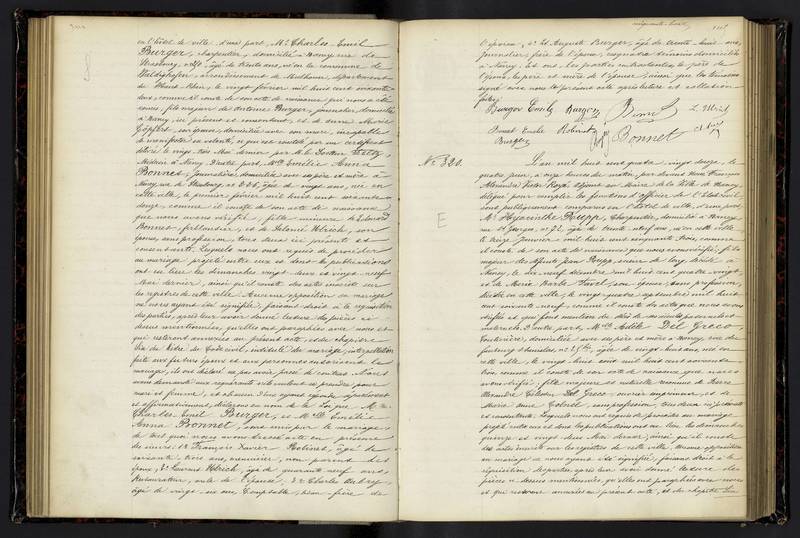 en l'hôtel de ville, d'une part, Mr Charles Emil
Burger, charpentier, domicilié à Nancy, rue de
Strasbourg, âgé de trente ans, né en la commune de
Waldighofen, arrondissement de Mulhouse, département
du Haut-Rhin, le vingt février mil huit cent soixante
deux, comme il conste de son acte de naissance
fils majeur de Antoine Burger, journalier, domicilié
à Nancy, ici présent et consentant, et de dame Marie
Göpfert, son épouse, domiciliée avec son mari, incapable
de manifester sa volonté, ce qui est constaté par un certificat
délivré le vingt trois Mai dernier par Mr le Docteur
Médecin à Nancy. D'autre part, Mlle Emélie Anna
Bonnet, journalière, domiciliée avec ses père et mère à
Nancy, rue de Strasbourg, âgée de vingt ans, née en
cette ville, le premier février mil huit cent soixante
douze, comme il conste de son acte de naissance
que nous avons vérifié, fille mineure de Edouard
Bonnet, ferblantier, et de Mélanie Ulrich, son
épouse, sans profession, tous deux ici présents et
consentants. Lesquels nous ont requis de procéder
au mariage projeté entre eux et dont les publications
ont eu lieu les dimanches vingt deux et vingt neuf
Mai dernier, ainsi qu'il conste des actes inscrits sur
les registres de cette ville. Aucune opposition au mariage
ne nous ayant été signifiée, faisant droit à la réquisition
des parties, après leur avoir donné lecture des pièces ci
dessus mentionnées, qu'elles ont paraphées avec nous et
qui resteront annexées au présent acte, et du chapitre
six du titre du Code civil, intitulé du mariage, interpellation
faite aux futurs époux et aux personnes autorisant le
mariage, ils ont déclaré ne pas avoir passé de contrat. Alors
nous demandé aux requérants s'ils veulent se prendre pour
mari et femme, et chacun d'eux ayant répondu séparément
et affirmativement, déclarons au nom de la Loi que Mr
Charles Emil Burger, et Mlle Emélie
Anna Bonnet, sont unis par le mariage,
de tout quoi nous avons dressé acte en présence
de sieurs 1° François Xavier Robinet, âgé de
soixante trois ans, menuisier, non parent des
époux, 2° Laurent Ulrich, âgé de quarante neuf ans,
Restaurateur, oncle de l'épouse, 3° Charles Aubry
âgé de vingt six ans, Comptable, beau-frère de
l'épouse, 4° Auguste Burger, âgé de trente huit ans,
journalier, frère de l'époux, domiciliés
à Nancy. Les parties contractantes, le père de
l'époux, les père et mère de l'épouse, ainsi que les témoins
signé avec nous le présent acte après lecture et collation
faite.
Burger Emile Burger L. Ulrich
Bonnet Emélie Robinet
Burger Bonnet
No 321.
L'an mil huit cent quatre vingt douze, le
quatre juin, à onze heures du matin, par devant Nous
Alexandre Victor Adjoint au Maire de la Ville de Nancy,
délégué pour remplir les fonctions d'officier de l'Etat civil
sont publiquement comparus en l'hôtel de ville, d'une part,
Mr Hyacinthe Rupp, Charpentier, domicilié à Nancy,
rue St Georges, no 71, âgé de trente neuf ans, né en cette ville
le treize Janvier mil huit cent cinquante trois, comme
il conste de son acte de naissance que nous avons vérifié, fils
majeur des défunts Jean Rupp, scieur de long, décédé à
Nancy, le dix neuf décembre mil huit cent quatre vingt,
et de Marie Barbe Favel, son épouse, sans profession,
décédée en cette ville, le vingt quatre septembre mil huit
cent soixante neuf, comme il conste des actes que nous avons
vérifiés et qui font mention du décès de ses aïeuls paternels et
maternels. D'autre part, Mlle Adèle Del Greco,
Couturière, domiciliée avec ses père et mère à Nancy, rue du
faubourg Stanislas, âgée de vingt huit ans, née en
cette ville, le vingt huit août mil huit cent soixante
trois, comme il conste de son acte de naissance que nous
avons vérifié, fille majeure et naturelle reconnue de Pierre
Alexandre Célestin Del Greco, ouvrier imprimeur, et de
Marie Anne, sans profession, tous deux ici présents
et consentants. Lesquels nous ont requis de procéder au mariage
projeté entre eux et dont les publications ont eu lieu les dimanches
quinze et vingt deux Mai dernier, ainsi qu'il conste
des actes inscrits sur les registres de cette ville. Aucune opposition
au mariage ne nous ayant été signifiée, faisant droit à la
réquisition des parties, après leur avoir donné lecture des
pièces ci dessus mentionnées, qu'elles ont paraphées avec nous
et qui resteront annexées au présent acte, et du chapitre six